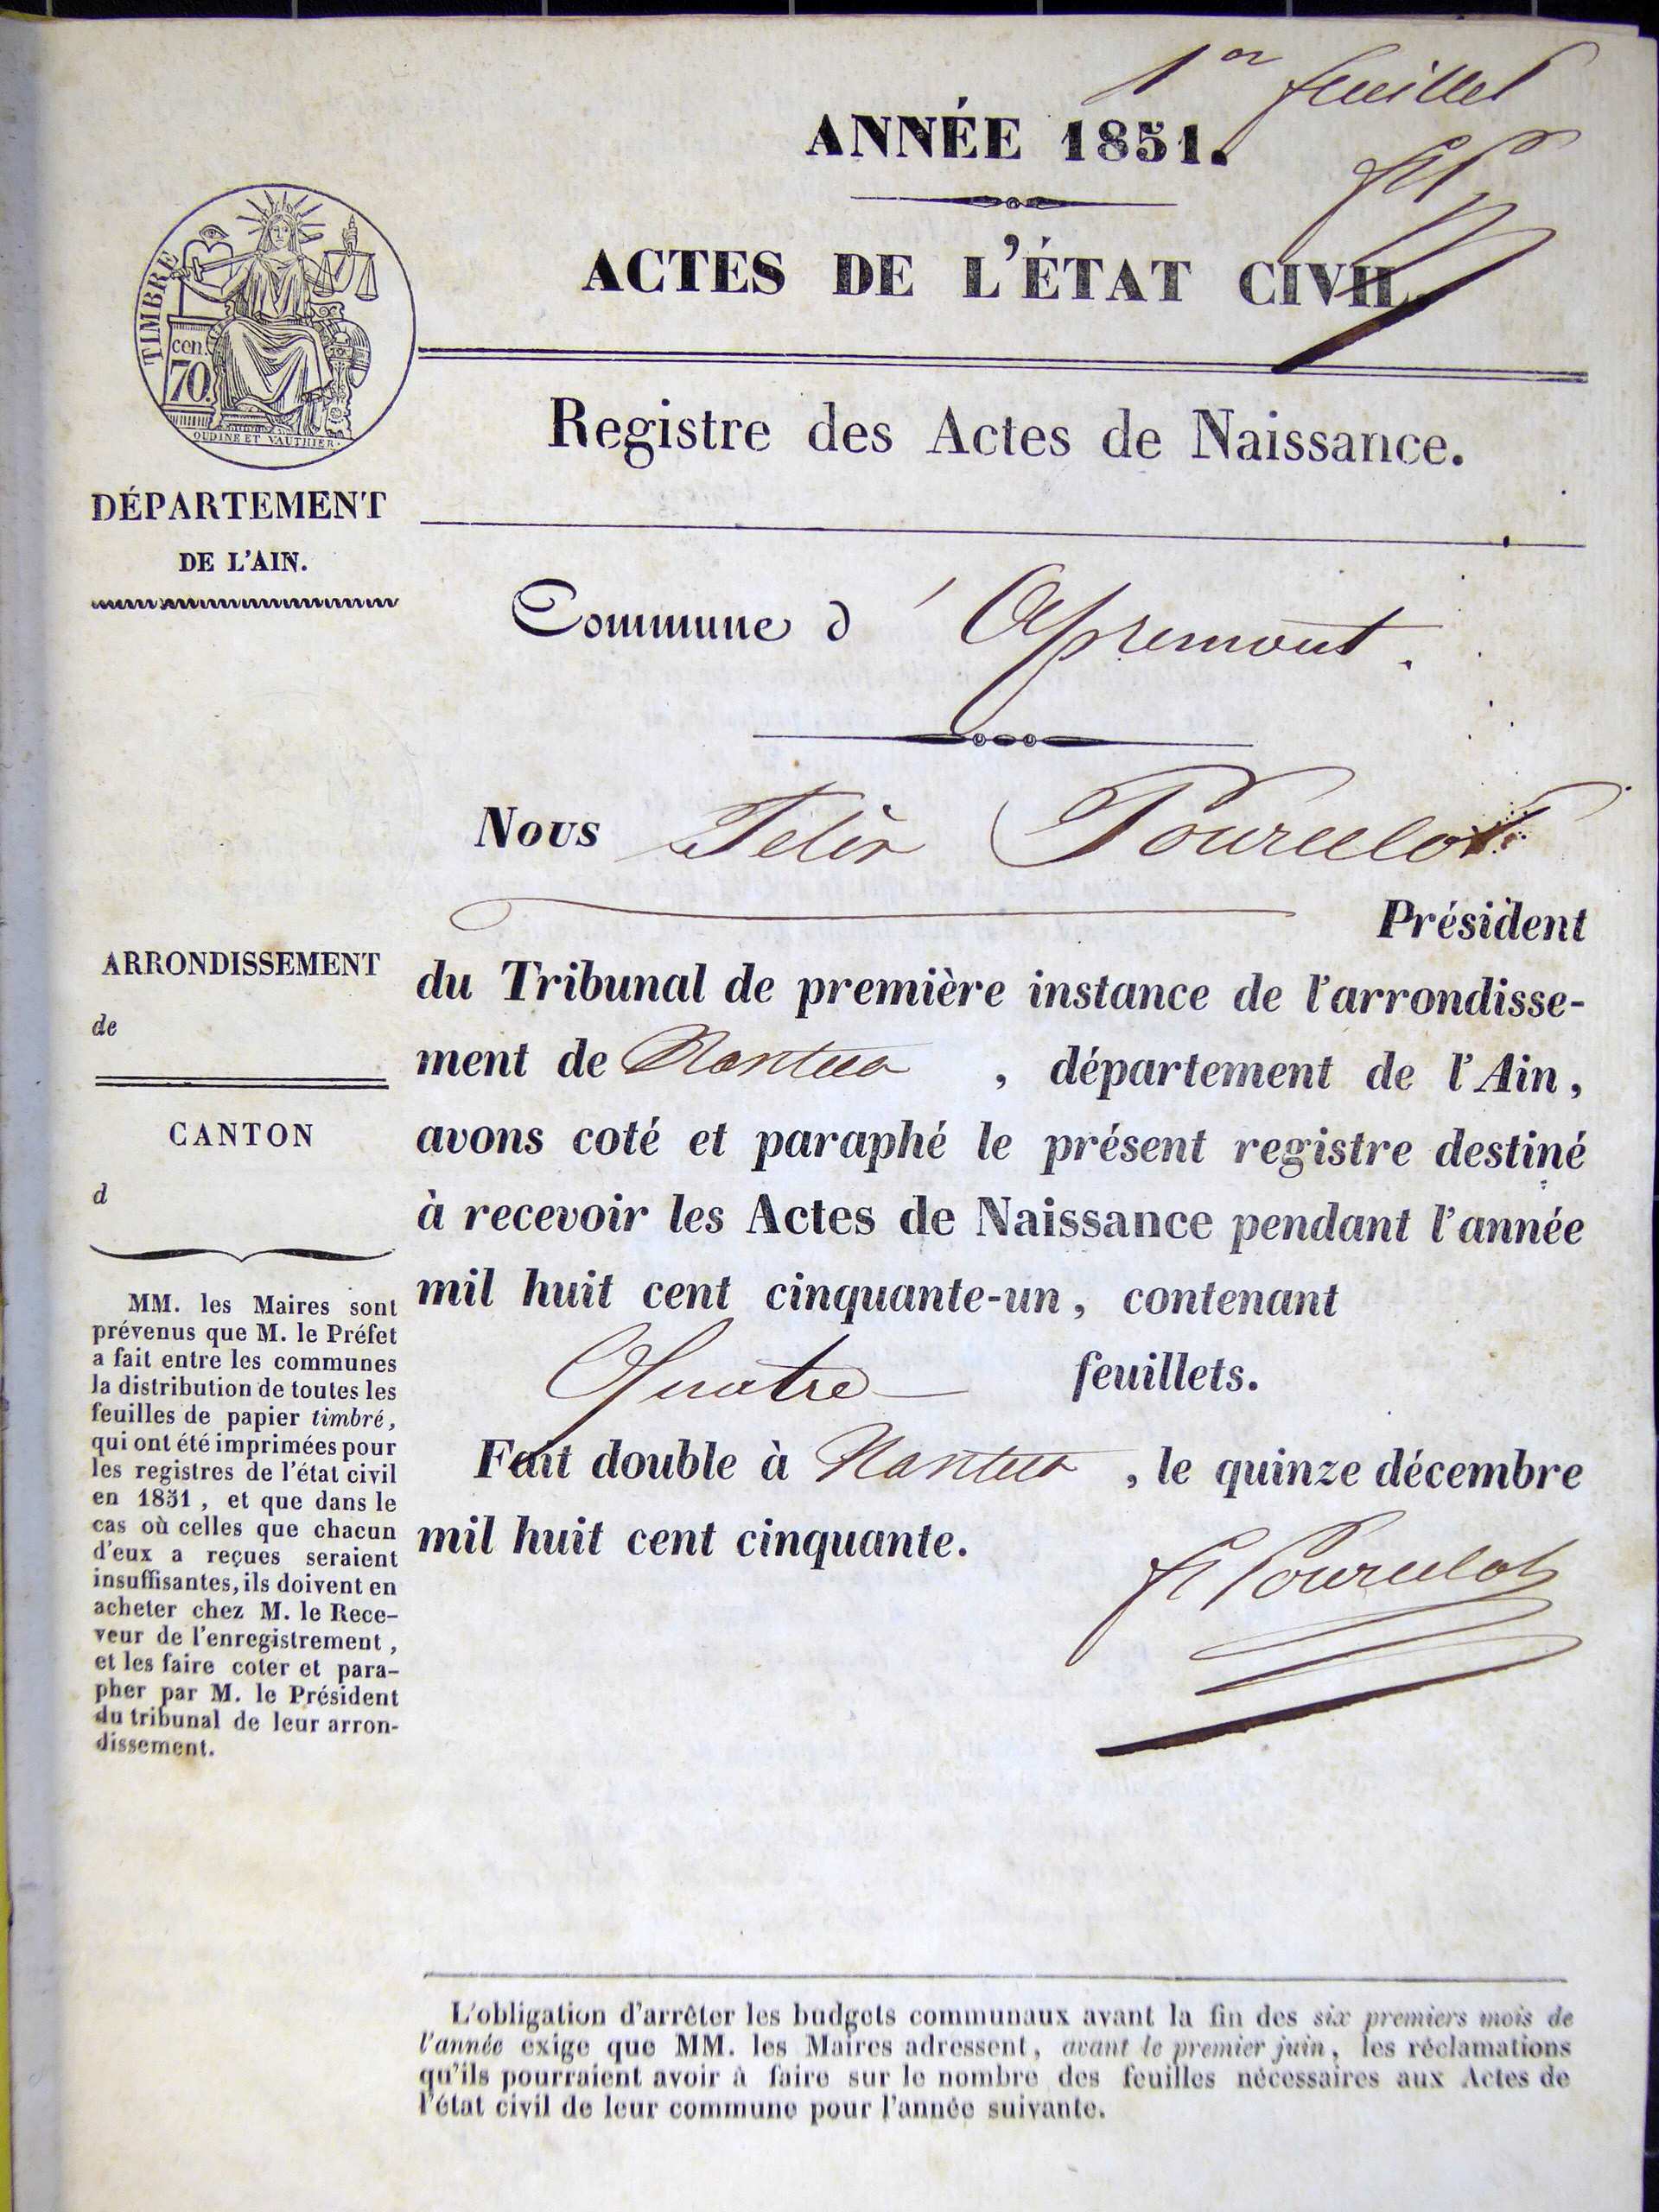 1er feuillet
ANNÉE 1851.
ACTES DE L'ÉTAT CIVIL.
TIMBRE
cen.
70.
OUDINE ET VAUTHIER.
Registre des Actes de Naissance.
DÉPARTEMENT
DE L'AIN.
Commune d'Apremont.
Nous Félix Pourcelot
Président
du Tribunal de première instance de l'arrondisse-
ment de Nantua, département de l'Ain,
avons coté et paraphé le présent registre destiné
à recevoir les Actes de Naissance pendant l'année
mil huit cent cinquante-un, contenant
Quatre feuillets.
Fait double à Nantua, le quinze décembre
mil huit cent cinquante.
f Pourcelot
ARRONDISSEMENT
de
CANTON
d
MM. les Maires sont
prévenus que M. le Préfet
a fait entre les communes
la distribution de toutes les
feuilles de papier timbré,
qui ont été imprimées pour
les registres de l'état civil
en 1851, et que dans le
cas où celles que chacun
d'eux a reçues seraient
insuffisantes, ils doivent en
acheter chez M. le Rece-
veur de l'enregistrement,
et les faire coter et para-
pher par M. le Président
du tribunal de leur arron-
dissement.
L'obligation d'arrêter les budgets communaux avant la fin des six premiers mois de
l'année exige que MM. les Maires adressent, avant le premier juin, les réclamations
qu'ils pourraient avoir à faire sur le nombre des feuilles nécessaires aux Actes de
l'état civil de leur commune pour l'année suivante.